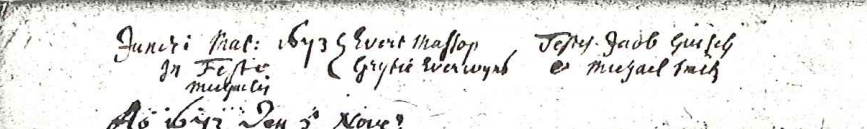 Juncti Mat: 1673 { Evert Massop Testes. Jacob
In Festo { Grytie Everwyns & Michael Smitz
Michaelis
Ao 1673 Den 5 Nove: